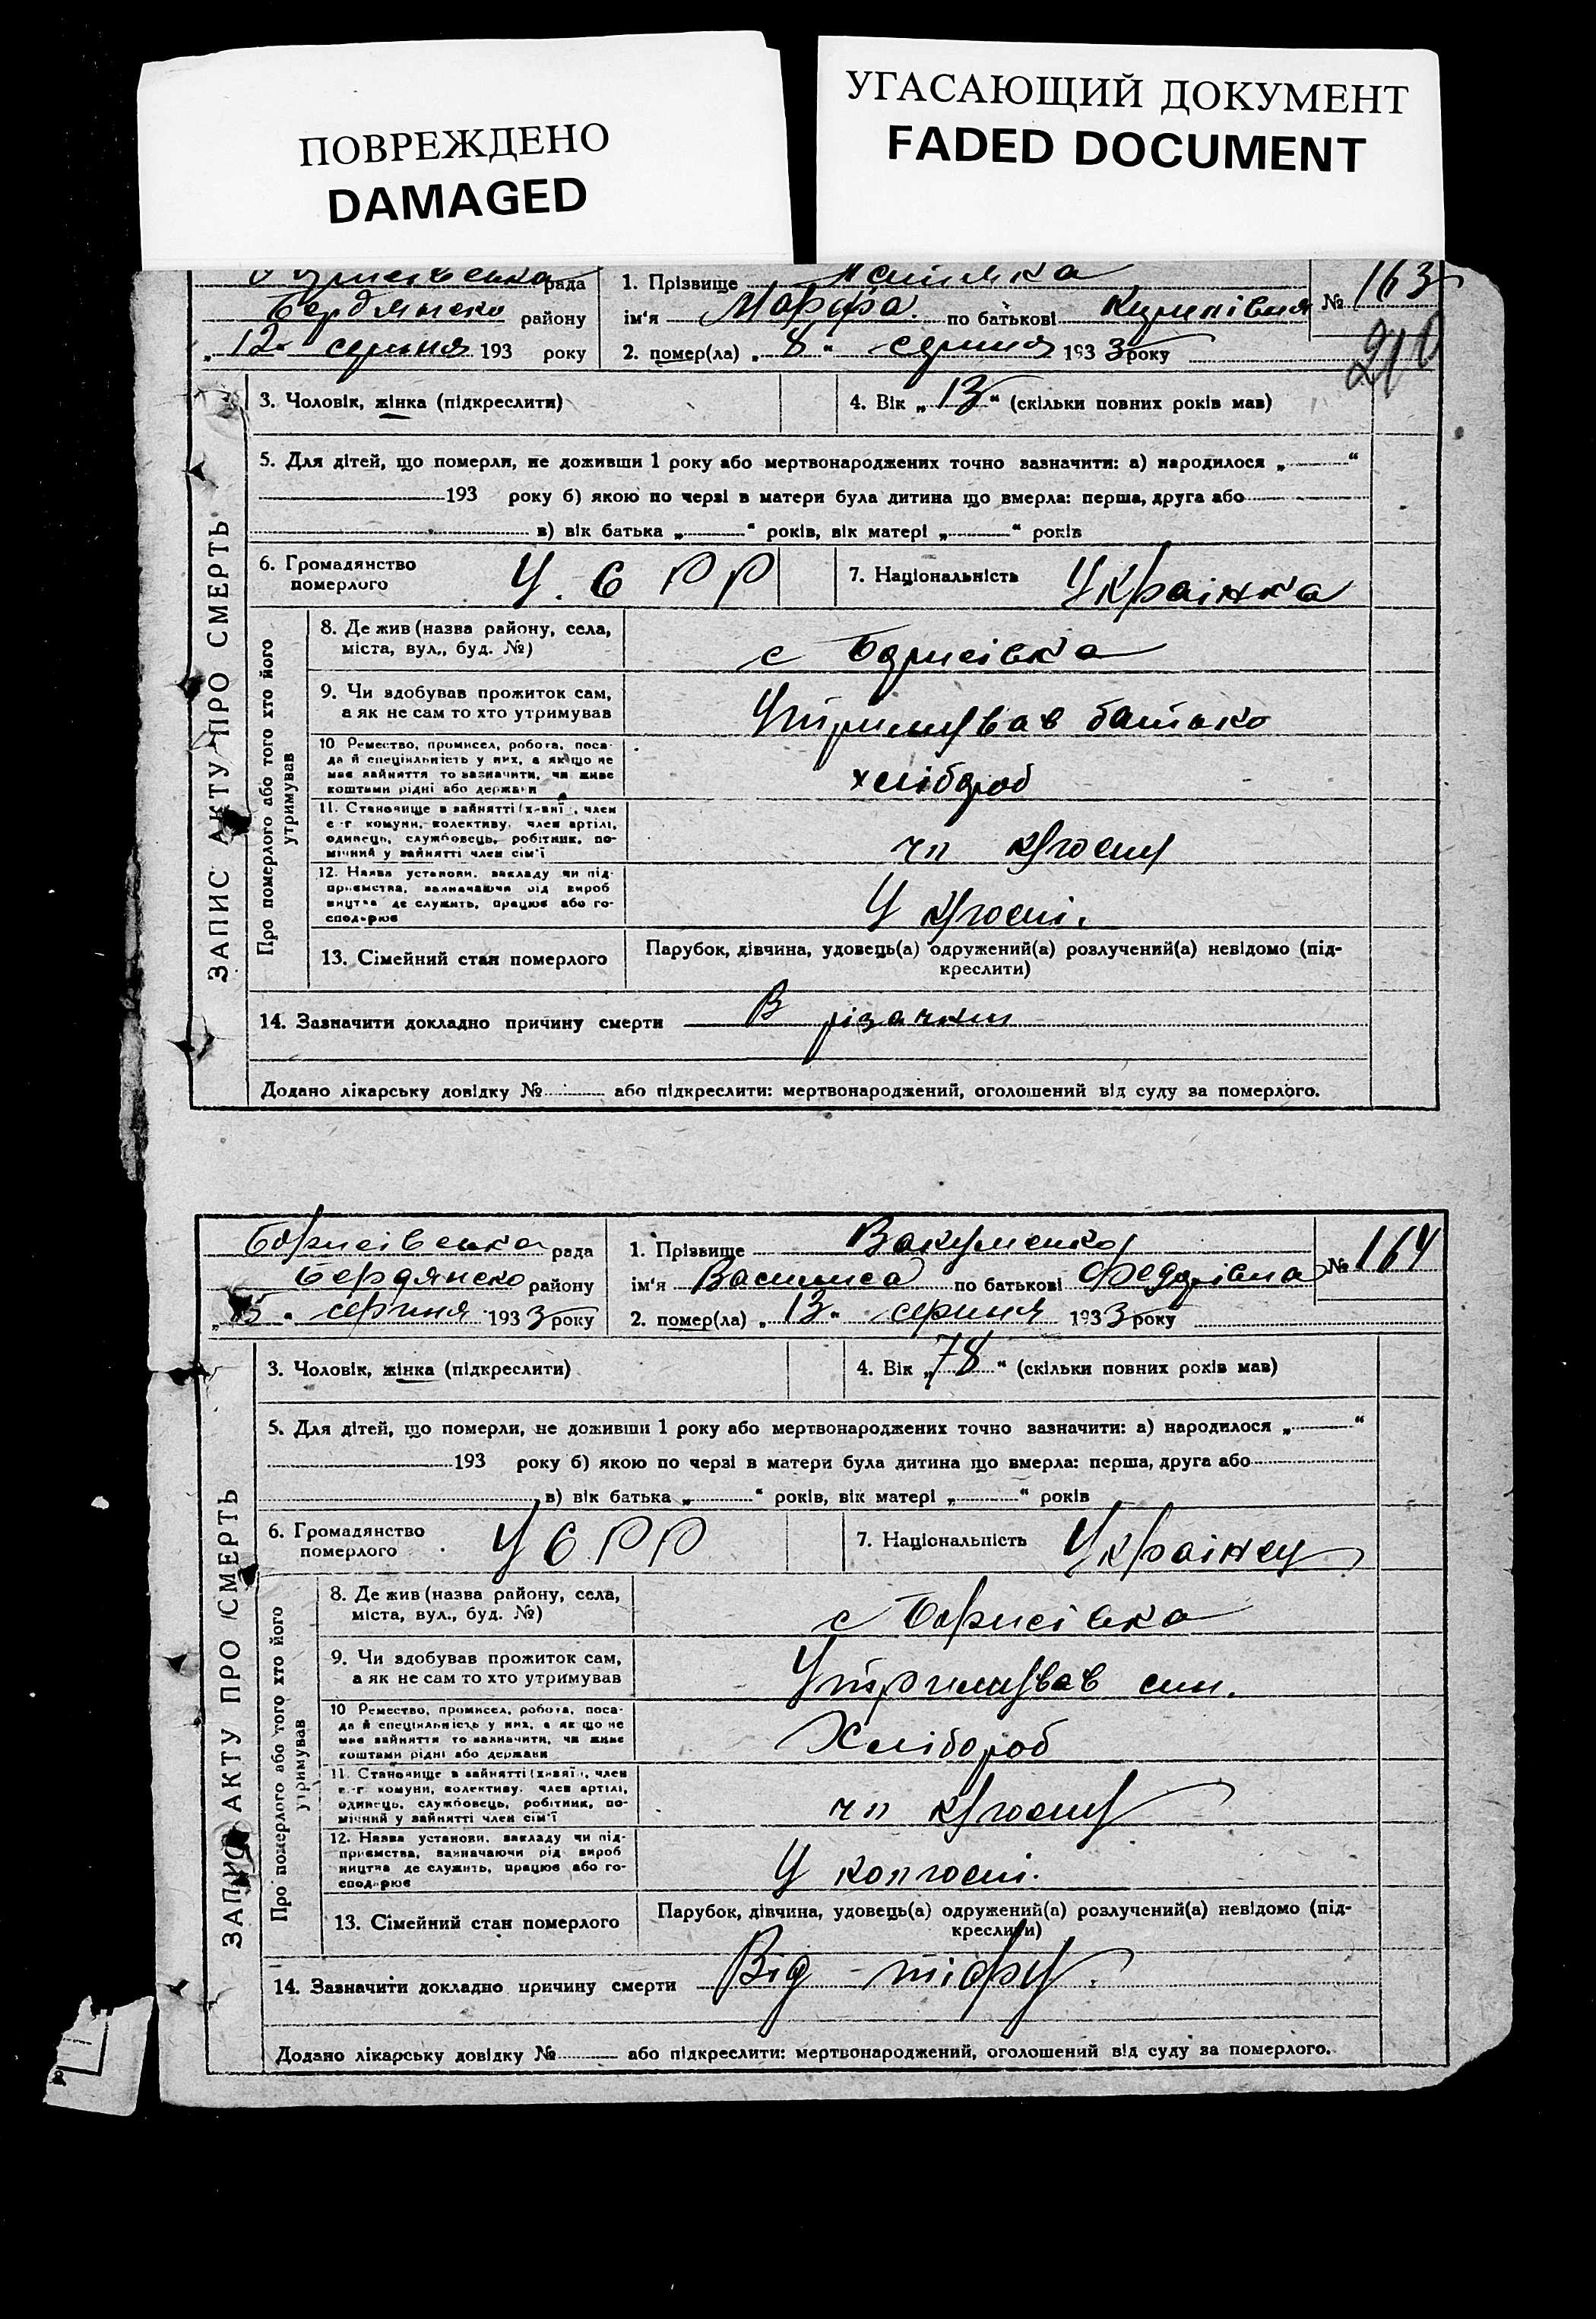 ПОВРЕЖДЕНО
DAMAGED
УГАСАЮЩИЙ ДОКУМЕНТ
FADED DOCUMENT
рада
Бердянско району
„12“ серпня 193 року
1. Прізвище
ім'я Марфа. по батькові
2. помер(ла) „8“ серпня 1933 року
№ 163
210
ЗАПИС АКТУ ПРО СМЕРТЬ
3. Чоловік, жінка (підкреслити)
4. Вік „13“ (скільки повних років мав)
5. Для дітей, що померли, не доживши 1 року або мертвонароджених точно зазначити: а) народилося „ “
193 року б) якою по черзі в матери була дитина що вмерла: перша, друга або
в) вік батька „ “ років, вік матері „ “ років
6. Громадянство
померлого
У. С Р Р
7. Національність Українка
Про померлого або того хто його
утримував
8. Де жив (назва району, села,
міста, вул., буд. №)
с Борисівка
9. Чи здобував прожиток сам,
а як не сам то хто утримував
Утримував батько
10 Ремество, промисел, робота, поса-
да й спеціяльність у них, а якщо не
має зайняття то зазначити, чи живе
коштами рідні або держави
хлібороб
11. Становище в зайнятті (хазяї, член
с.-г. комуни, колективу, член артілі,
одинець, службовець, робітник, по-
мічний у зайнятті член сім'ї
чл к/госпу
12. Назва установи, закладу чи під-
приємства, зазначаючи рід вироб
ництва де служить, працює або го-
сподарює
У к/госпі.
13. Сімейний стан померлого
Парубок, дівчина, удовець(а) одружений(а) розлучений(а) невідомо (під-
креслити)
14. Зазначити докладно причину смерти В різачки
Додано лікарську довідку № або підкреслити: мертвонароджений, оголошений від суду за померлого.
Борисівська рада
Бердянско району
серпня 1933 року
1. Прізвище Вакуленко
ім'я Василиса по батькові Федорівна
2. помер(ла) „13“ серпня 1933 року
№ 164
ЗАПИС АКТУ ПРО СМЕРТЬ
3. Чоловік, жінка (підкреслити)
4. Вік „78“ (скільки повних років мав)
5. Для дітей, що померли, не доживши 1 року або мертвонароджених точно зазначити: а) народилося „ “
193 року б) якою по черзі в матери була дитина що вмерла: перша, друга або
в) вік батька „ “ років, вік матері „ “ років
6. Громадянство
померлого
У С Р Р
7. Національність Українец
Про померлого або того хто його
утримував
8. Де жив (назва району, села,
міста, вул., буд. №)
с Борисівка
9. Чи здобував прожиток сам,
а як не сам то хто утримував
Утримував син.
10 Ремество, промисел, робота, поса-
да й спеціяльність у них, а якщо не
має зайняття то зазначити, чи живе
коштами рідні або держави
Хлібороб
11. Становище в зайнятті (хазяї, член
с.-г. комуни, колективу, член артілі,
одинець, службовець, робітник, по-
мічний у зайнятті член сім'ї
чл к/госпу
12. Назва установи, закладу чи під-
приємства, зазначаючи рід вироб
ництва де служить, працює або го-
сподарює
У колгоспі.
13. Сімейний стан померлого
Парубок, дівчина, удовець(а) одружений(а) розлучений(а) невідомо (під-
креслити)
14. Зазначити докладно причину смерти Від тіфу.
Додано лікарську довідку № або підкреслити: мертвонароджений, оголошений від суду за померлого.